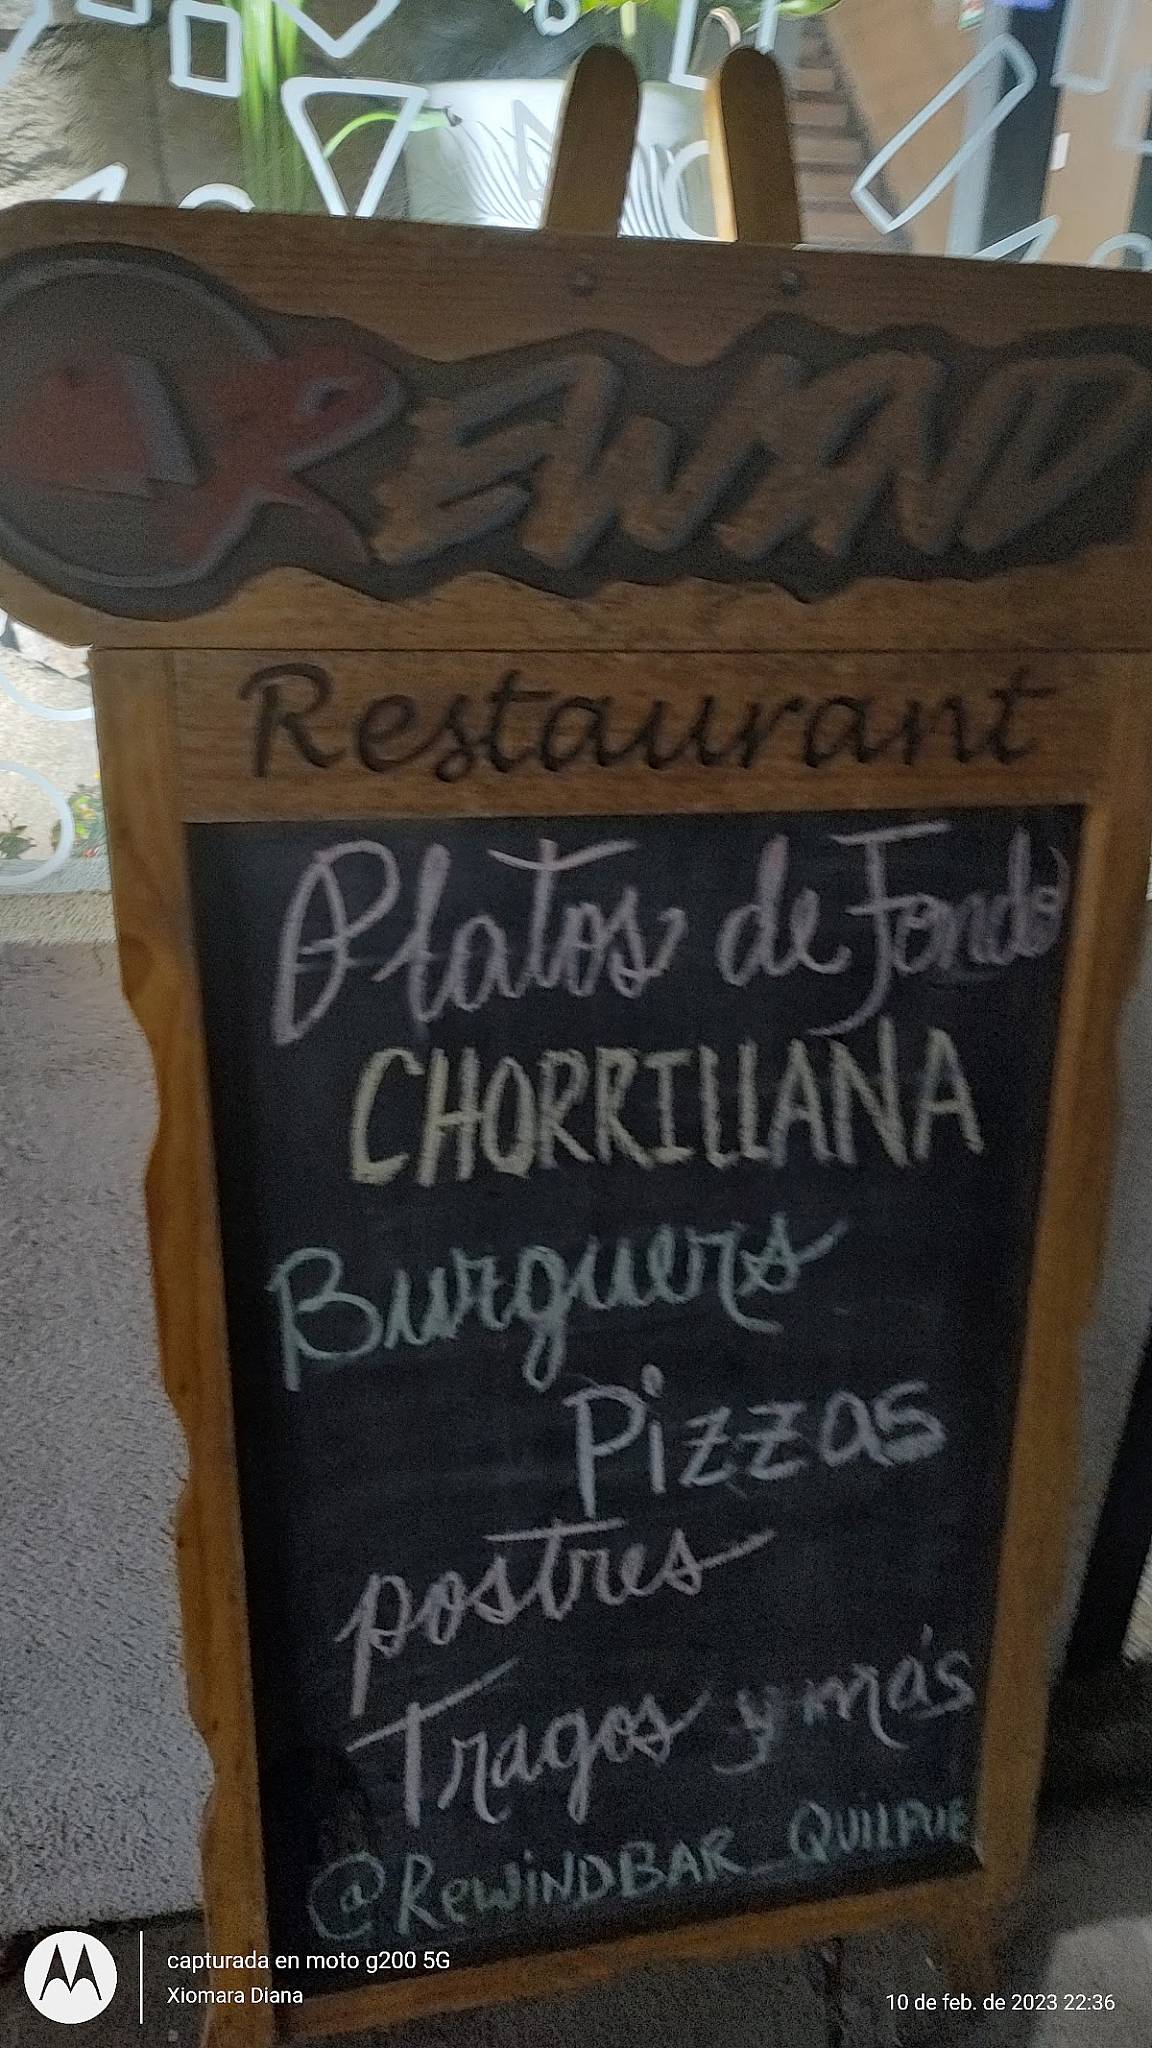 REWIND
Restaurant
Platos de Fondo
CHORRILLANA
Burguers
Pizzas
postres
Tragos y más
@REWiNDBAR_QUILPUE
capturada en moto g200 5G
Xiomara Diana
10 de feb. de 2023 22:36